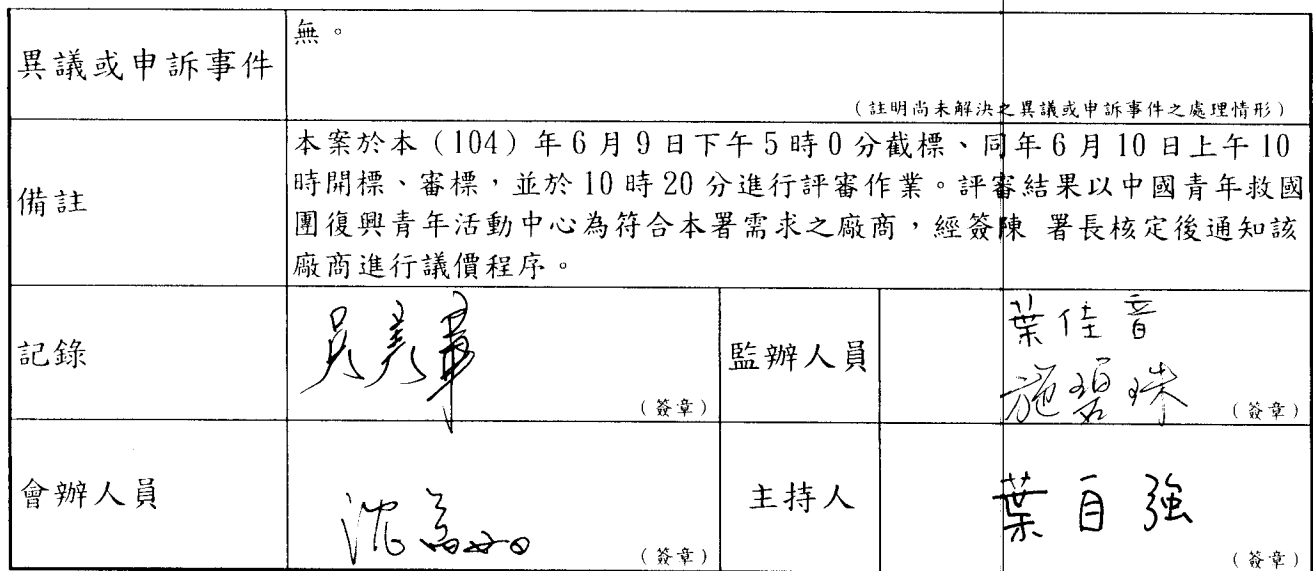 異議或申訴事件
無。
(註明尚未解決之異議或申訴事件之處理情形)
備註
本案於本(104)年6月9日下午5時0分截標、同年6月10日上午10
時開標、審標,並於10時20分進行評審作業。評審結果以中國青年救國
團復興青年活動中心為符合本署需求之廠商,經簽陳 署長核定後通知該
廠商進行議價程序。
記錄
(簽章)
監辦人員
葉佳音
施碧珠
(簽章)
會辦人員
(簽章)
主持人
葉自強
(簽章)